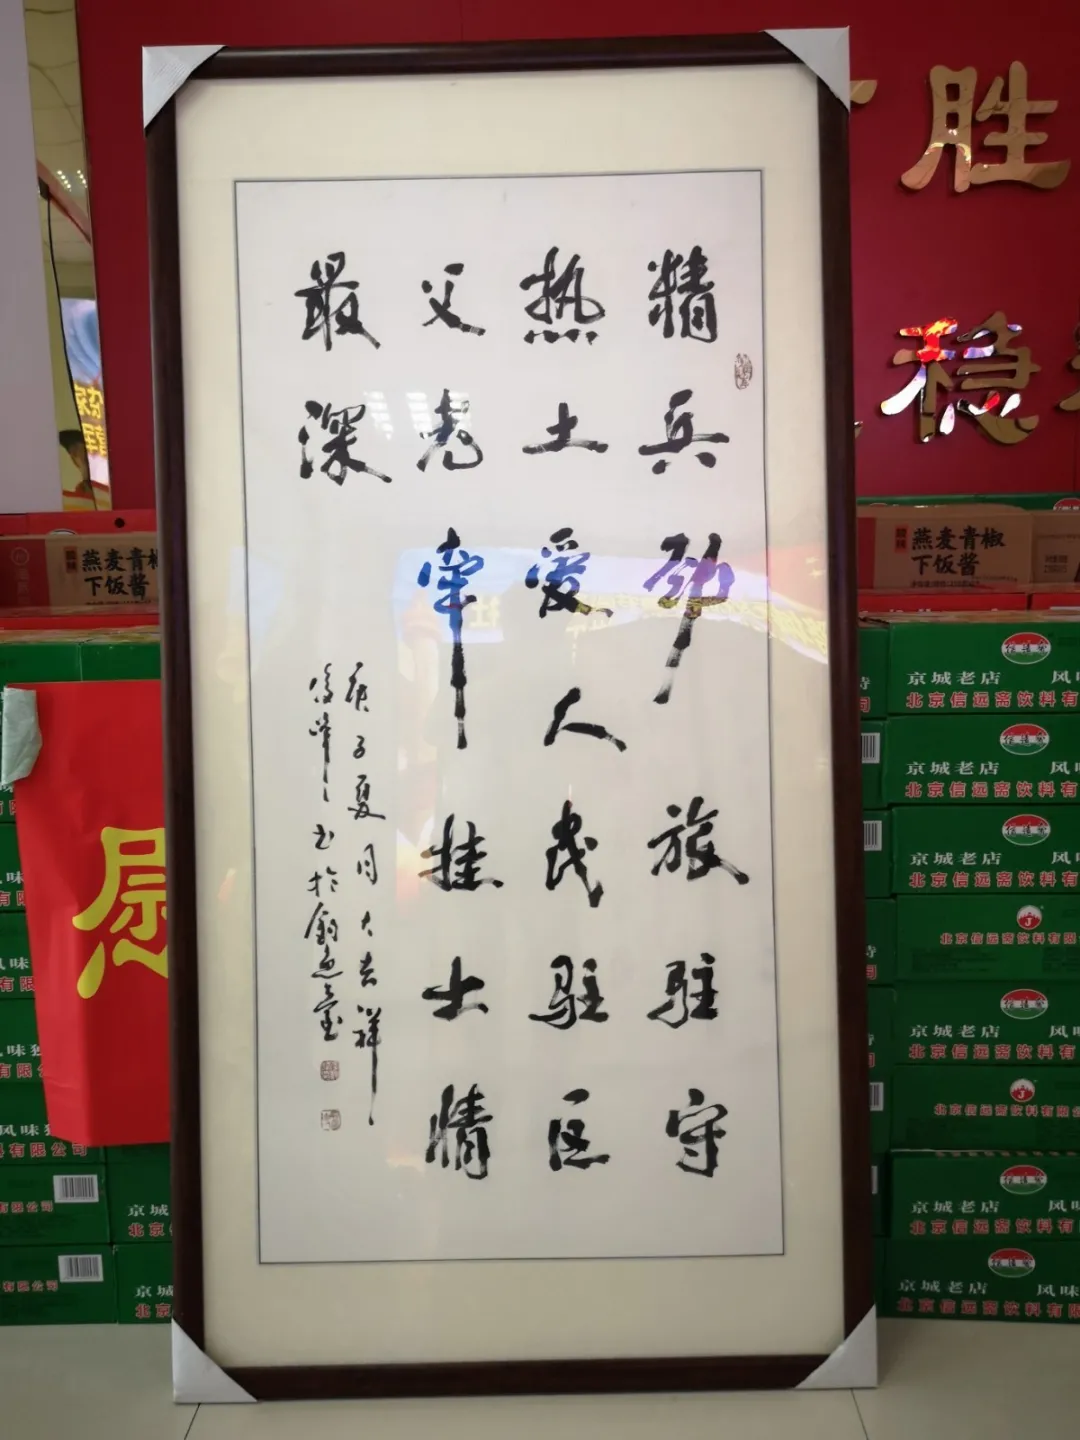 精兵劲旅驻守
热土爱人民驻区
父老牵挂士情
最深
庚子夏月大吉祥
书于钓鱼台
胜
稳
慰
燕麦青椒
下饭酱
燕麦青椒
下饭酱
京城老店
风味
北京信远斋饮料有限
京城老店
风味
北京信远斋饮料有限
京城老店
风味
北京信远斋饮料有限
北京信远斋饮料有限
京城老店
风味
北京信远斋饮料有限
北京信远斋饮料有限
京城老店
风味
北京信远斋饮料有限
京城老店
风味
北京信远斋饮料有限
风味独
有限公司
有限公司
京城
北京
有限公司
京城
北京